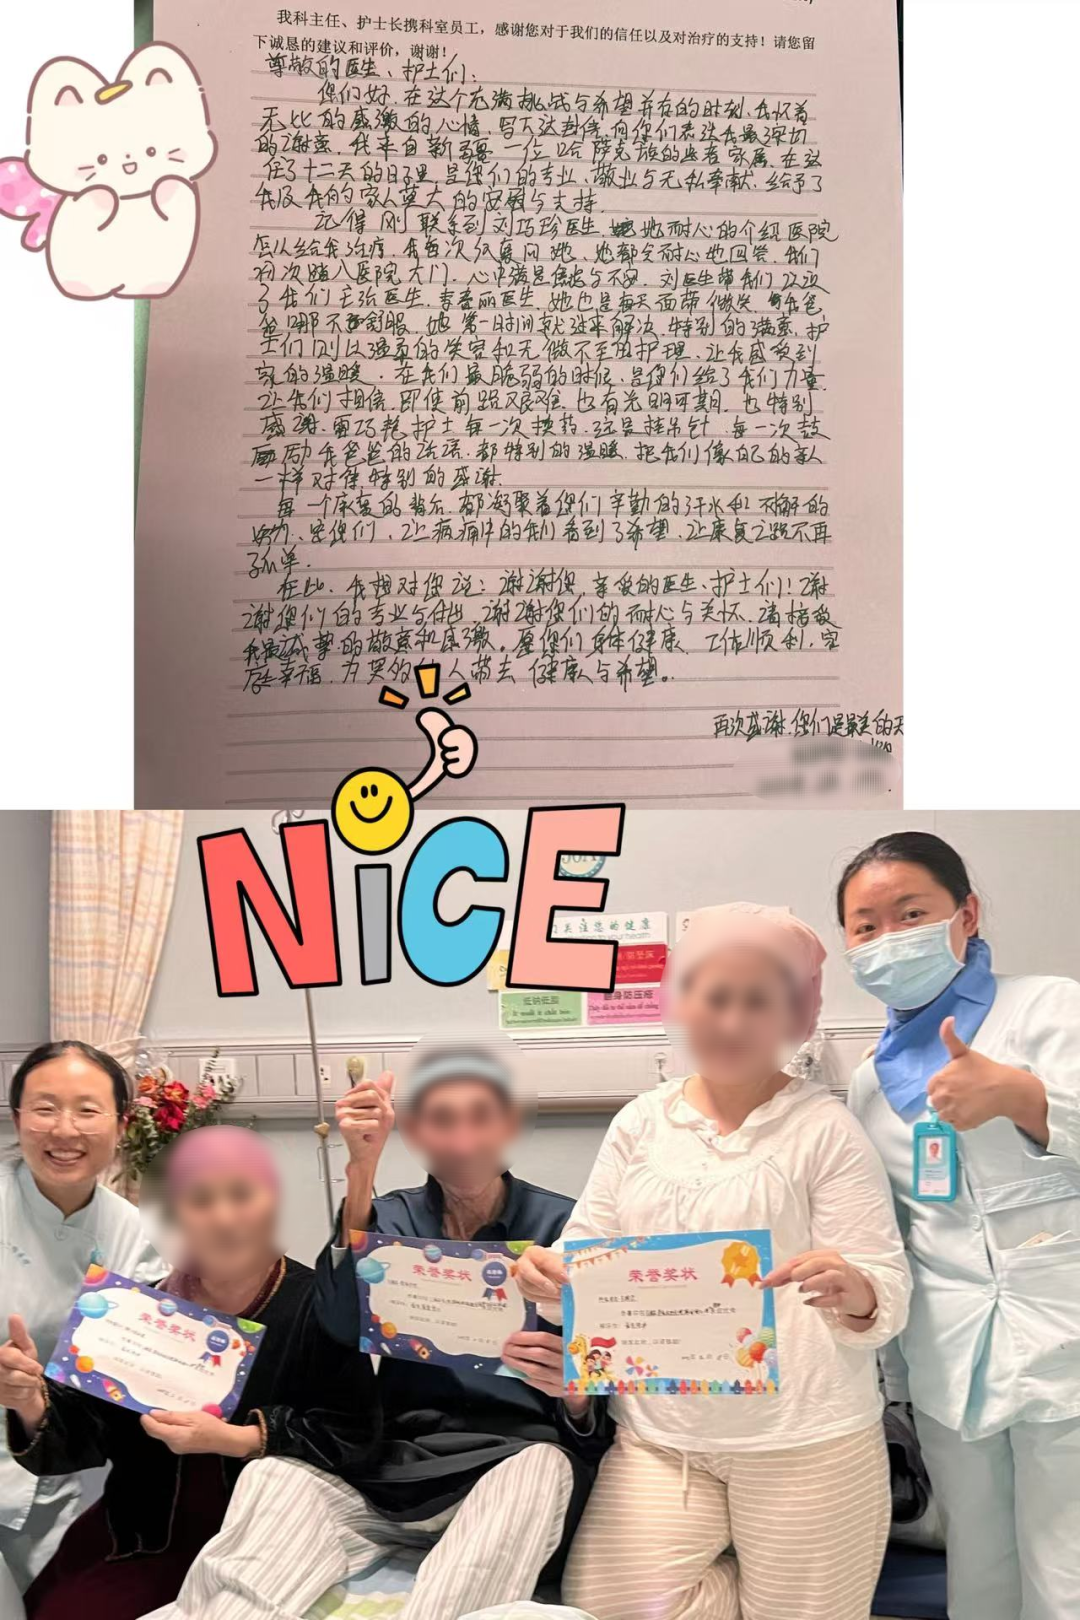 我科主任、护士长携科室员工，感谢您对于我们的信任以及对治疗的支持！请您留
下诚恳的建议和评价，谢谢！
尊敬的医生、护士们：
您们好．在这个充满挑战与希望并存的时刻，我怀着
无比的感激的心情，写下这封信，向您们表达我最深切
的谢意．我来自新疆一位哈萨克族的患者家属．在这
住了十二天的日子里是您们的专业、敬业与无私奉献．给予了
我及我的家人莫大的安慰与支持．
记得刚联系到刘巧珍医生．她耐心的介绍医院
怎么给我治疗．我每次反复问她、她都会耐心地回答．我们
初次踏入医院大门．心中满是焦虑与不安．刘医生带我们
了我们主治医生．李香丽医生．她也是每天面带微笑．我爸
爸哪不舒服．她第一时间就进来解决．特别的满意．护
士们则以温柔的笑容和无微不至的护理．让我感受到
家的温暖．在我们最脆弱的时候．是您们给了我们力量．
让我们相信．即使前路艰难．也有光明可期．也特别
感谢．护士每一次换药．还是挂吊针．每一次鼓
励我爸爸的话语．都特别的温暖．把我们像自己的亲人
一样对待．特别的感谢．
每一个康复的背后．都凝聚着您们辛勤的汗水和不懈的
努力．是您们、让病痛中的我们看到了希望．让康复之路不再
孤单．
在此、我想对您说：谢谢您．亲爱的医生、护士们！谢
谢您们的专业与付出．谢谢您们的耐心与关怀．请接受
我最诚挚的敬意和感激。愿您们身体健康．工作顺利，家
庭幸福．为更多的人带去健康与希望。
再次感谢．您们是最美的天
NiCE
关注您的健康
低钠低脂
翻身防压疮
荣誉奖状
荣誉奖状
荣誉奖状